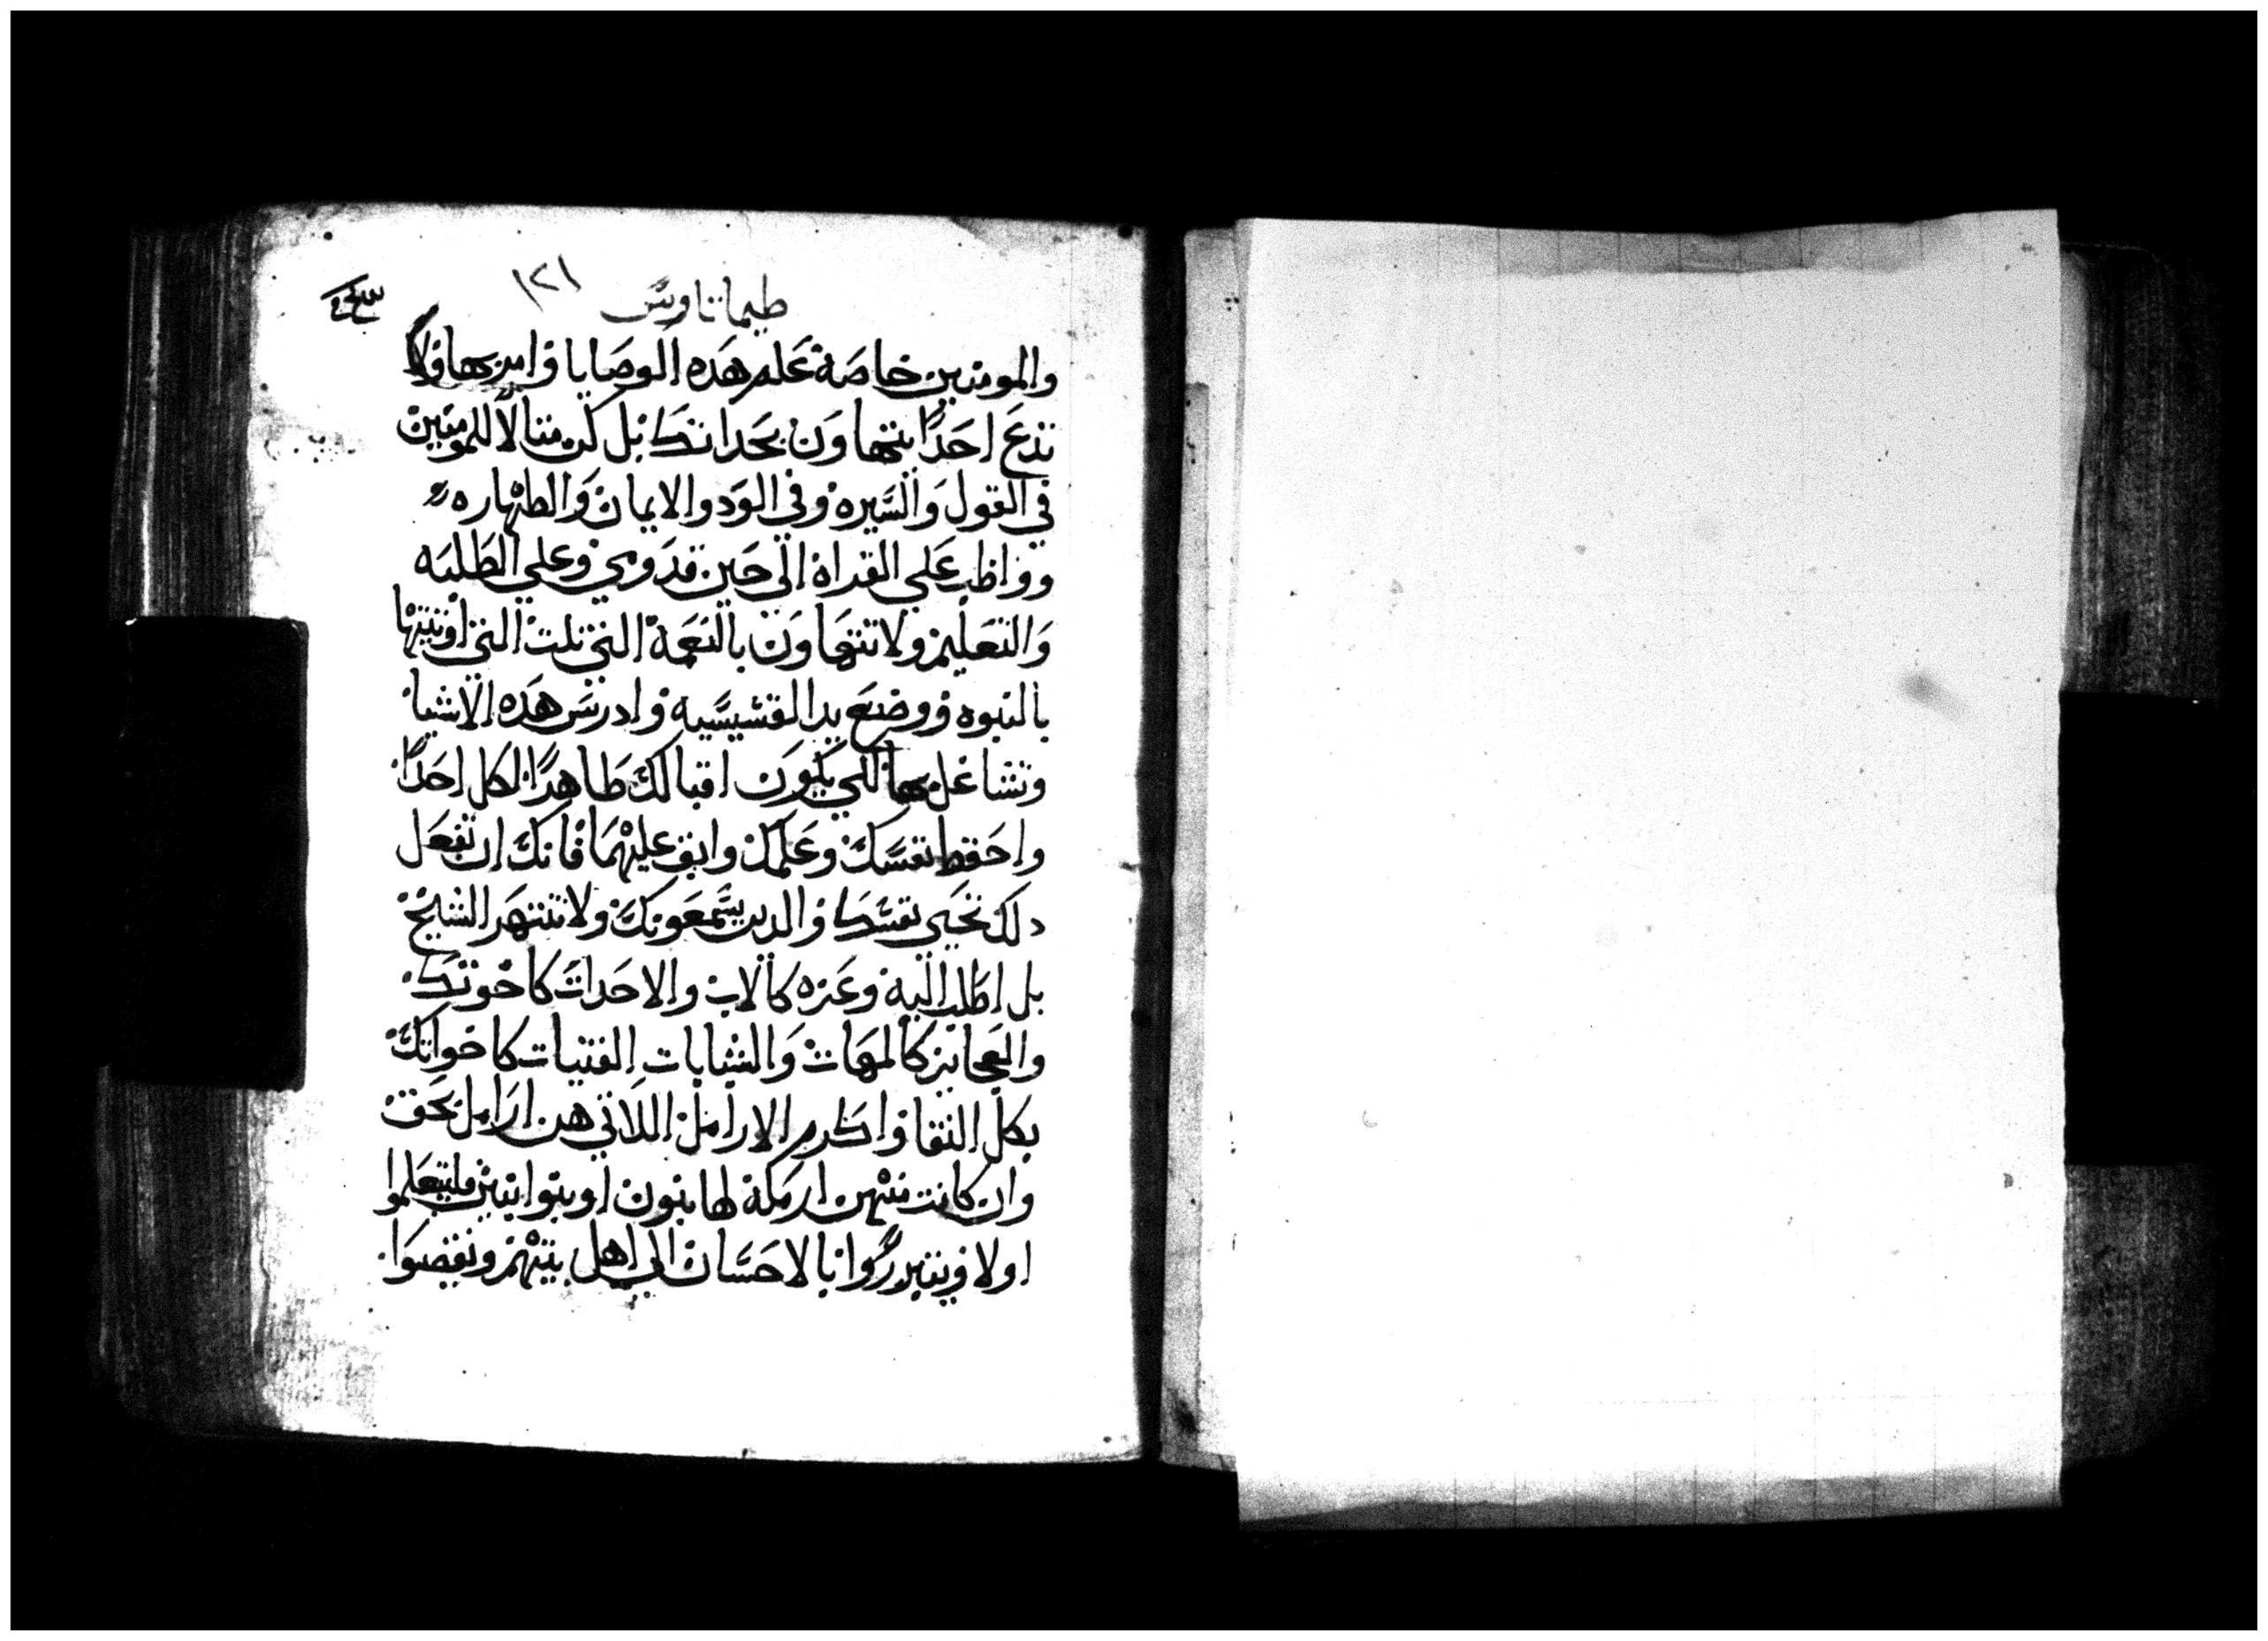 طيماتاوس ١٢١
والمومنين خاصة علم هده الوصايا وامر بها ولا
تدع احدًا يتهاون بحداتتك بل كن متالاً للمومنين
في القول والسيره وفي الود والايمان والطهاره
وواظب علي القراة الي حين قدومي وعلي الطلبه
والتعليم ولا تتهاون بالنعمة التي نلت التي اوتيتها
بالنبوه ووضع يد القسيسيه وادرس هده الاشيا
وتشاغل بها لكي يكون اقبالك ظاهرًا لكل احدًا
واحفظ نفسك وعلمك وابق عليهما فانك ان تفعل
دلك تحيي نفسك والدين يسمعونك ولا تنتهر الشيخ
بل اطلب اليه وعزه كالاب والاحدات كاخوتك
والعجايز كالمهات والشابات الفتيات كاخواتك
بكل النقا واكرم الارامل اللاتي هن ارامل بحق
وان كانت منهن ارملة لها بنون او بنوا بنين فليتعلموا
اولا ويتبرروا بالاحسان الي اهل بيتهم ويقضوا